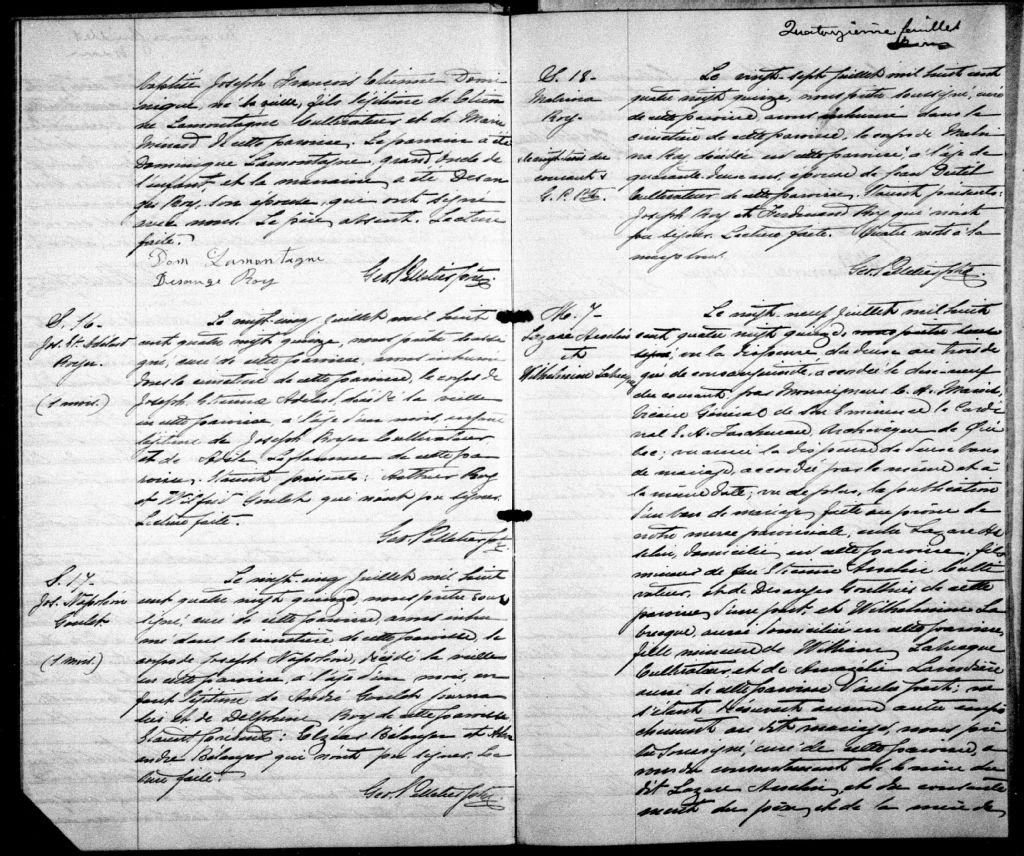 baptisé Joseph François Etienne Domi-
nique, né la veille, fils légitime de Etien-
ne Lamontagne Cultivateur et de Marie
de cette paroisse. Le parrain a été
Dominique Lamontagne, grand oncle de
l'enfant, et la marraine a été Desan-
ges Roy, son épouse, qui ont signé
avec nous. Le père absent. Lecture
faite.
Dom Lamontagne
Desange Roy
Geo. Pelletier Ptre
S. 16-
Jos. Et.
(1 mois.)
Le vingt-cinq Juillet mil huit
cent quatre vingt quinze, nous prêtre soussi-
gné, curé de cette paroisse, avons inhumé
dans le cimetière de cette paroisse, le corps de
Joseph Etienne décédé la veille
en cette paroisse, à l'âge d'un mois, enfant
légitime de Joseph Cultivateur
et de de cette pa-
roisse. Etaient présents: Roy
et Goulet qui n'ont pu signer.
Lecture faite.
Geo. Pelletier Ptre
S. 17.
Jos. Napoléon
Goulet
(1 mois.)
Le vingt-cinq Juillet mil huit
cent quatre vingt quinze, nous prêtre sous-
signé, curé de cette paroisse, avons inhu-
mé dans le cimetière de cette paroisse, le
corps de Joseph Napoléon, décédé la veille
en cette paroisse à l'âge d'un mois, en-
fant légitime de André Goulet journa-
lier et de Delphine Roy de cette paroisse
Etaient présents: Elzéar Bélanger et Alex-
andre Bélanger qui n'ont pu signer. Lec-
ture faite.
Geo. Pelletier Ptre
Quatorzième feuillet
S. 18-
Malvina
Roy.
G. P. Ptre.
Le vingt-sept Juillet mil huit cent
quatre vingt quinze, nous prêtre soussigné, curé
de cette paroisse, avons inhumé dans le
cimetière de cette paroisse, le corps de Malvi-
na Roy décédée en cette paroisse, à l'âge de
quarante-deux ans, épouse de Jean
Cultivateur de cette paroisse. Etaient présents:
Joseph Roy et Ferdinand Roy qui n'ont
pu signer. Lecture faite. Quatre mots à la
Geo. Pelletier Ptre.
M. 7-
Lazare Asselin
et
Wilhelmine Labrecque
Le vingt-neuf Juillet mil huit
cent quatre vingt quinze, nous prêtre sous-
signé, vu la dispense du deux au trois de-
gré de consanguinité, accordée le dix-neuf
du courant, par Monseigneur C. A. Marois,
Vicaire Général de Son Eminence le Cardi-
nal E. A. Taschereau Archevêque de Qué-
bec; vu aussi la dispense de deux bans
de mariage, accordée par le même et à
la même date; vu de plus, la publication
d'un ban de mariage faite au prône de
notre messe paroissiale, entre Lazare As-
selin, domicilié en cette paroisse, fils
mineur de feu Etienne Asselin Culti-
vateur, et de Desanges Gouthier de cette
paroisse d'une part; et Wilhelmine La-
brecque, aussi domiciliée en cette paroisse,
fille mineure de William Labrecque
Cultivateur, et de
aussi de cette paroisse d'autre part; ne
s'étant découvert aucun autre empê-
chement au dit mariage, nous prê-
tre soussigné, curé de cette paroisse,
du consentement de la mère du
dit Lazare Asselin, et du consente-
ment du père et de la mère de